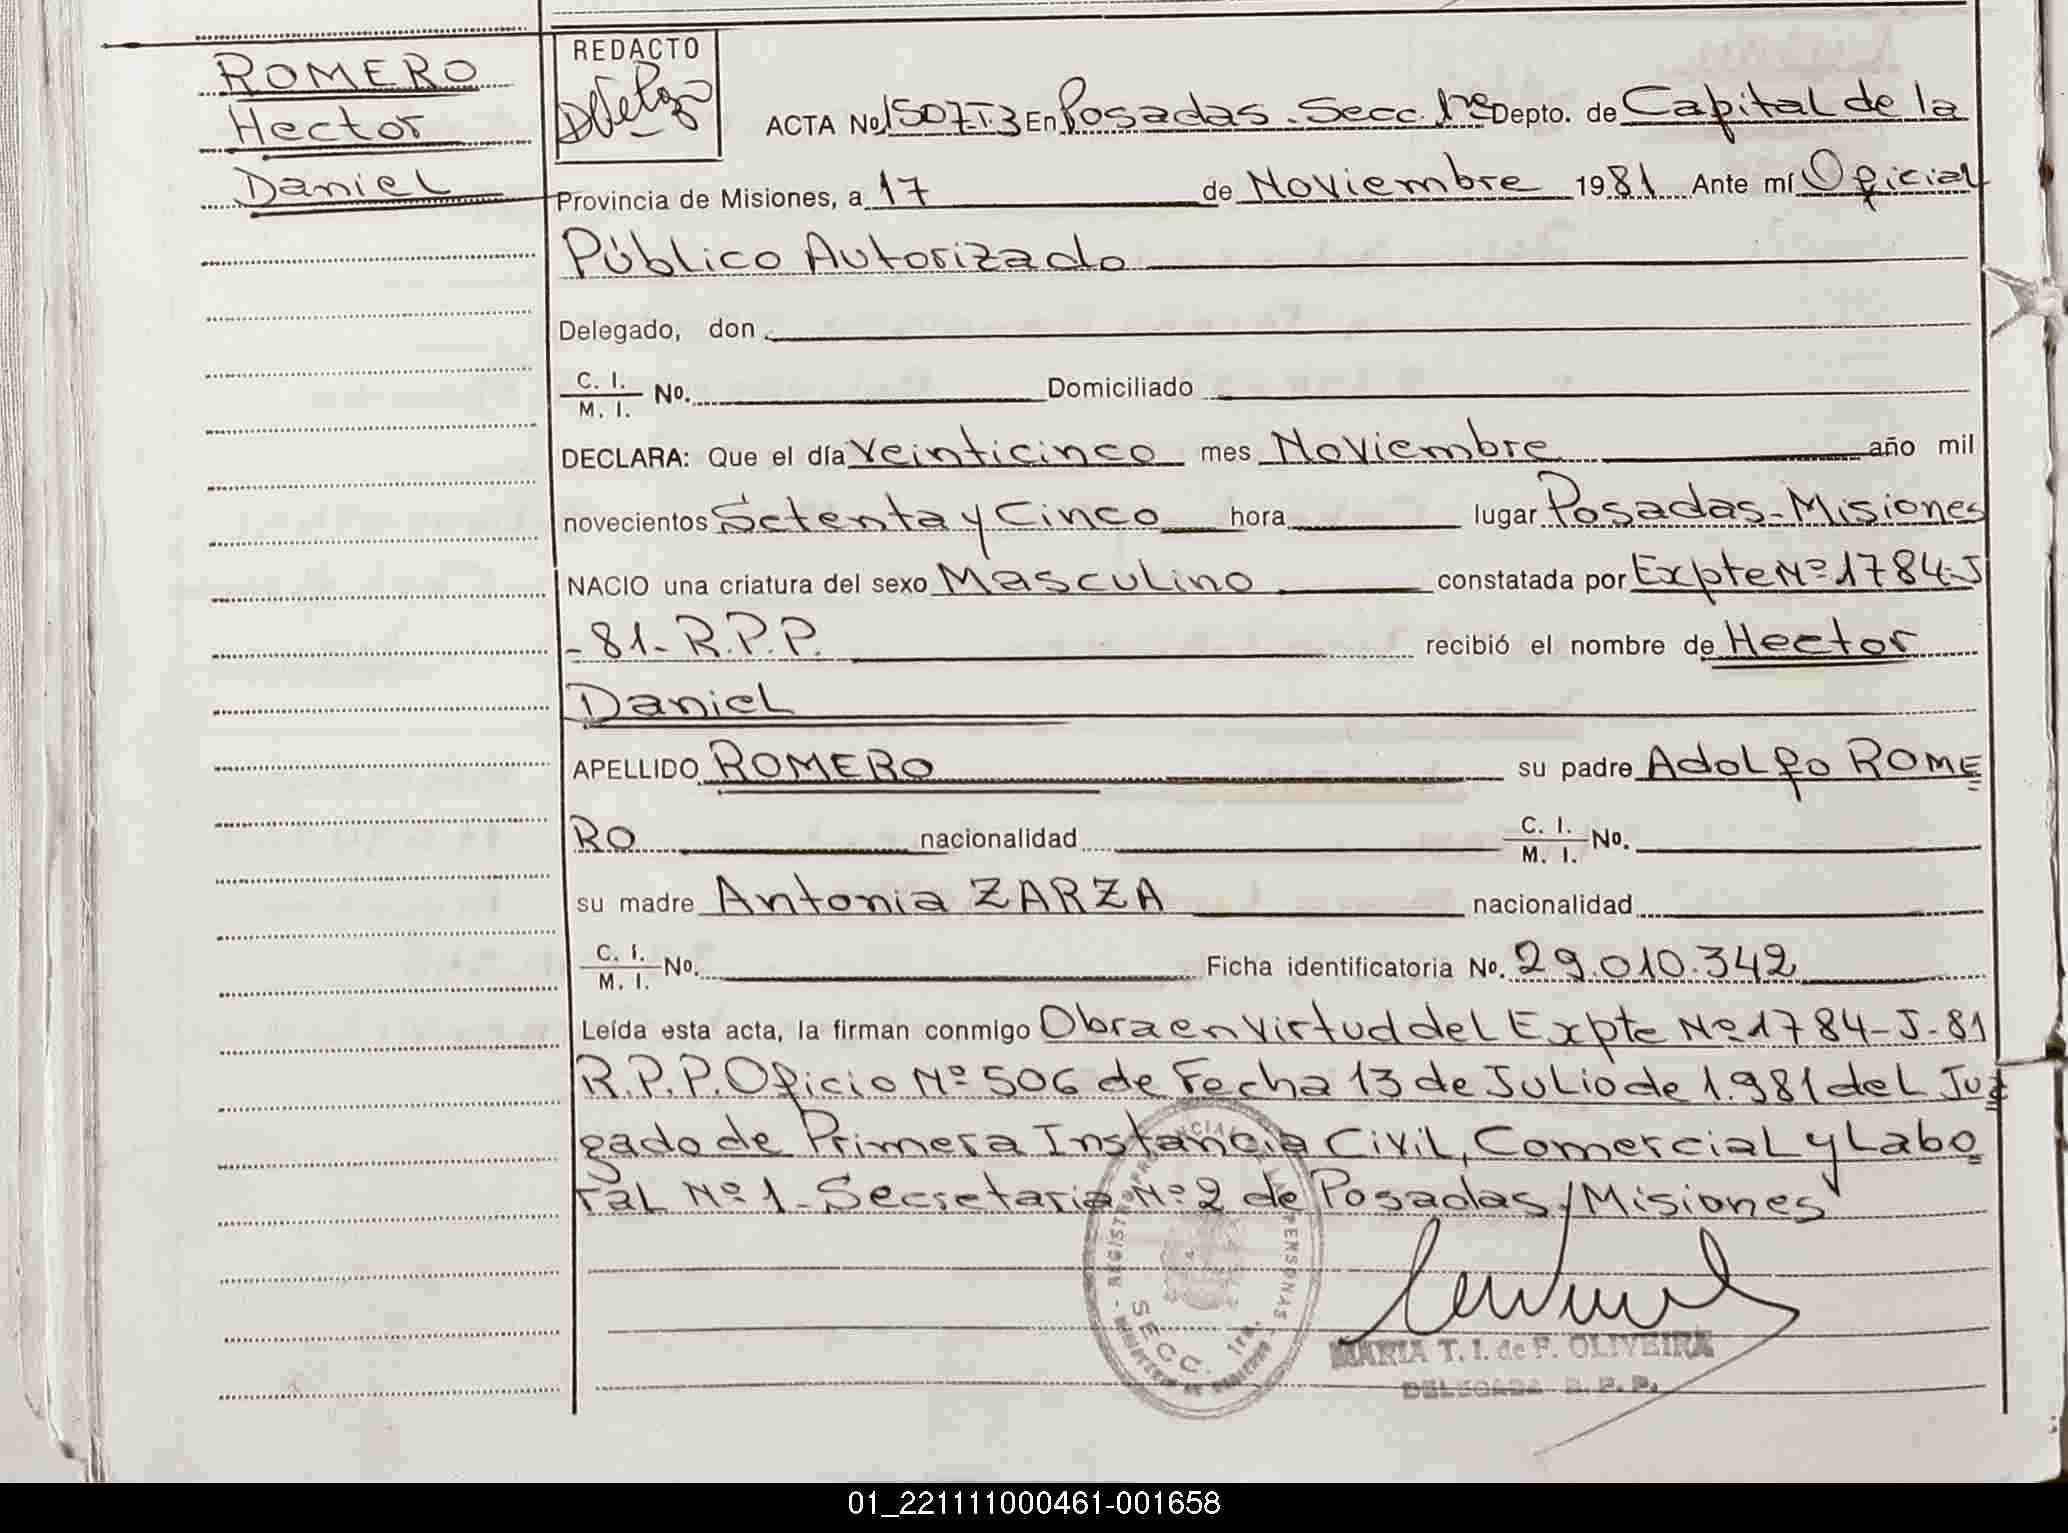 ROMERO
Hector
Daniel
REDACTO
ACTA No 1507-T3 En Posadas. Secc. 1ra Depto. de Capital de la
Provincia de Misiones, a 17 de Noviembre 1981 Ante mí Oficial
Público Autorizado
Delegado, don
C. I. / M. I. No. Domiciliado
DECLARA: Que el día veinticinco mes Noviembre año mil
novecientos Setenta y Cinco hora lugar Posadas-Misiones
NACIO una criatura del sexo Masculino constatada por Expte Nº 1784-J
-81-R.P.P. recibió el nombre de Hector
Daniel
APELLIDO ROMERO su padre Adolfo ROME
RO nacionalidad C. I. / M. I. No.
su madre Antonia ZARZA nacionalidad
C. I. / M. I. No. Ficha identificatoria No. 29.010.342
Leída esta acta, la firman conmigo Obra en virtud del Expte Nº 1784-J-81
R.P.P. Oficio Nº 506 de Fecha 13 de Julio de 1.981 del Juz
gado de Primera Instancia Civil, Comercial y Labo
ral Nº 1-Secretaria Nº 2 de Posadas/Misiones
REGISTRO PROVINCIAL DE LAS PERSONAS
SECC. 1ra.
MINISTERIO DE GOBIERNO
MARIA T. I. de F. OLIVEIRA
DELEGADA R. P. P.
01_221111000461-001658